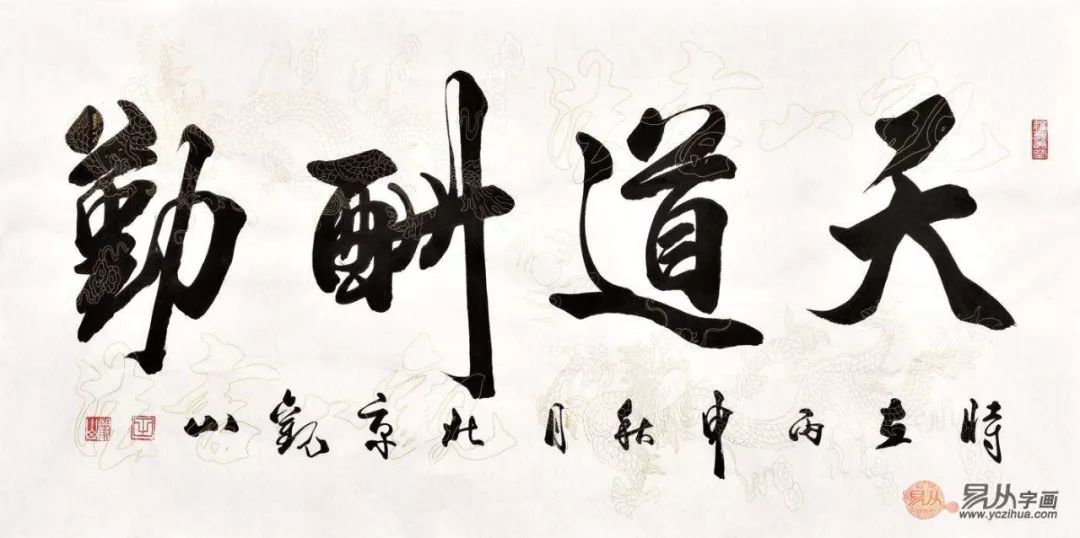 天道酬勤
時在丙申秋月北京観山
易从
易从字画
www.yczihua.com